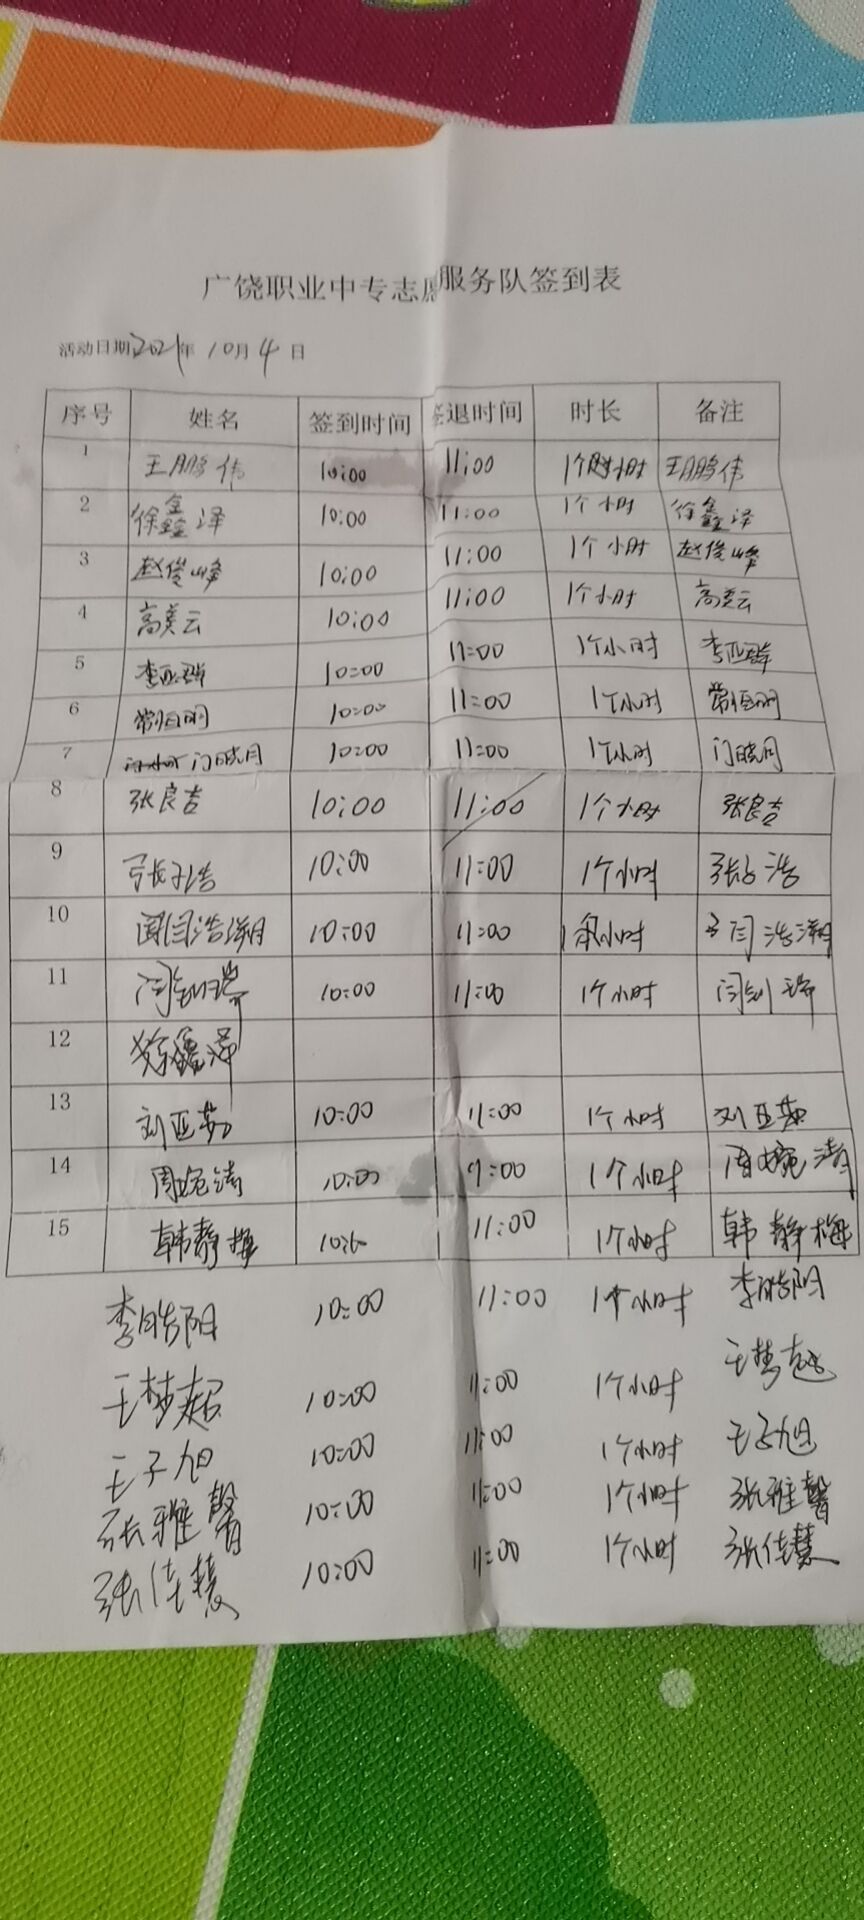 广饶职业中专志愿服务队签到表
活动日期2021年10月4日
序号 姓名 签到时间 签退时间 时长 备注
1 王鹏伟 10:00 11:00 1个小时 王鹏伟
2 徐鑫泽 10:00 11:00 1个小时 徐鑫泽
3 赵俊峰 10:00 11:00 1个小时 赵俊峰
4 高美云 10:00 11:00 1个小时 高美云
5 李亚群 10:00 11:00 1个小时 李亚群
6 常恒明 10:00 11:00 1个小时 常恒明
7 门晓月 10:00 11:00 1个小时 门晓月
8 张良吉 10:00 11:00 1个小时 张良吉
9 张子浩 10:00 11:00 1个小时 张子浩
10 闫浩翔 10:00 11:00 小时 闫浩翔
11 闫钊瑞 10:00 11:00 1个小时 闫钊瑞
12 徐鑫泽
13 刘亚茹 10:00 11:00 1个小时 刘亚茹
14 周婉清 10:00 11:00 1个小时 周婉清
15 韩静梅 10:0 11:00 1个小时 韩静梅
李皓阳 10:00 11:00 1个小时 李皓阳
王梦超 10:00 11:00 1个小时 王梦超
王子旭 10:00 11:00 1个小时 王子旭
张雅馨 10:00 11:00 1个小时 张雅馨
张佳慧 10:00 11:00 1个小时 张佳慧